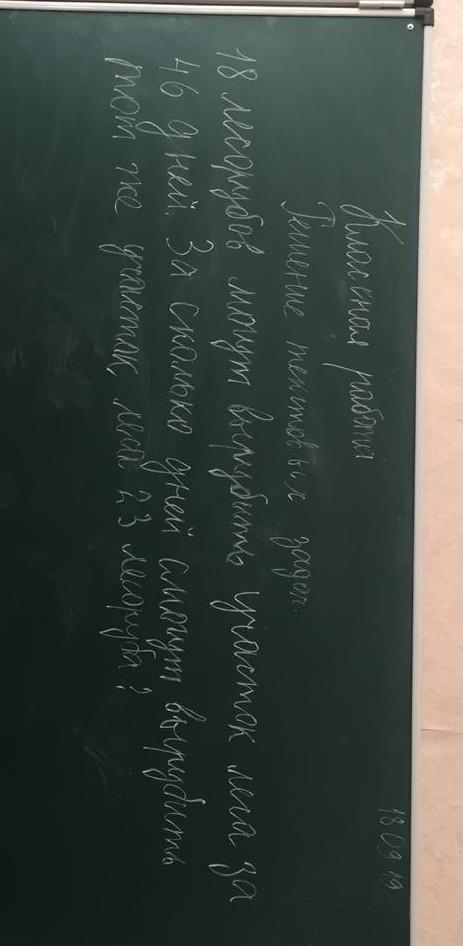 18.09.19.
Классная работа
Решение текстовых задач.
18 лесорубов могут вырубить участок леса за
46 дней. За сколько дней смогут вырубить
тот же участок леса 23 лесоруба?